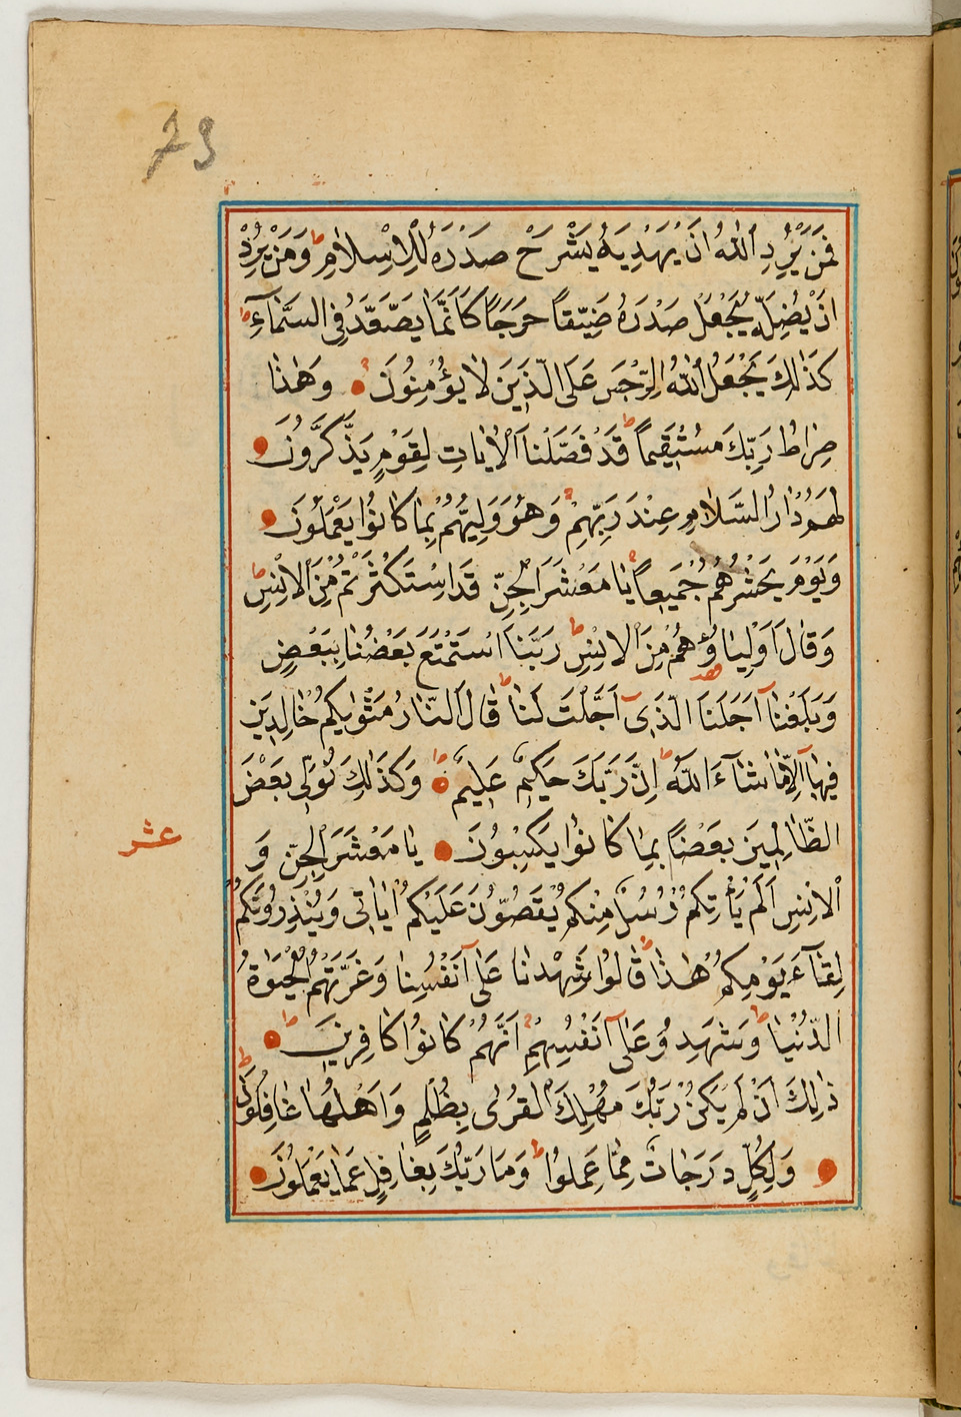 73
فَمَنْ يُرِدِ اللّٰهُ اَنْ يَهْدِيَهُ يَشْرَحْ صَدْرَهُ لِلْاِسْلَامِ ط وَمَنْ يُرِدْ
اَنْ يُضِلَّهُ يَجْعَلْ صَدْرَهُ ضَيِّقًا حَرَجًا كَاَنَّمَا يَصَّعَّدُ فِى السَّمَآءِ ط
كَذٰلِكَ يَجْعَلُ اللّٰهُ الرِّجْسَ عَلَى الَّذِينَ لَا يُؤْمِنُونَ وَهٰذَا
صِرَاطُ رَبِّكَ مُسْتَقِيمًا ط قَدْ فَصَّلْنَا الْاٰيَاتِ لِقَوْمٍ يَذَّكَّرُونَ
لَهُمْ دَارُ السَّلَامِ عِنْدَ رَبِّهِمْ وَهُوَ وَلِيُّهُمْ بِمَا كَانُوا يَعْمَلُونَ
وَيَوْمَ يَحْشُرُهُمْ جَمِيعًا يَا مَعْشَرَ الْجِنِّ قَدِ اسْتَكْثَرْتُمْ مِنَ الْاِنْسِ ط
وَقَالَ اَوْلِيَاؤُهُمْ مِنَ الْاِنْسِ ط رَبَّنَا اسْتَمْتَعَ بَعْضُنَا بِبَعْضٍ
وَبَلَغْنَا اَجَلَنَا الَّذِى اَجَّلْتَ لَنَا ط قَالَ النَّارُ مَثْوٰيكُمْ خَالِدِينَ
فِيهَا اِلَّا مَا شَآءَ اللّٰهُ ط اِنَّ رَبَّكَ حَكِيمٌ عَلِيمٌ ط وَكَذٰلِكَ نُوَلِّى بَعْضَ
الظَّالِمِينَ بَعْضًا بِمَا كَانُوا يَكْسِبُونَ يَا مَعْشَرَ الْجِنِّ وَ
عشر
الْاِنْسِ اَلَمْ يَأْتِكُمْ رُسُلٌ مِنْكُمْ يَقُصُّونَ عَلَيْكُمْ اٰيَاتِى وَيُنْذِرُونَكُمْ
لِقَآءَ يَوْمِكُمْ هٰذَا ط قَالُوا شَهِدْنَا عَلٰى اَنْفُسِنَا وَغَرَّتْهُمُ الْحَيٰوةُ
الدُّنْيَا ط وَشَهِدُوا عَلٰى اَنْفُسِهِمْ اَنَّهُمْ كَانُوا كَافِرِينَ ط
ذٰلِكَ اَنْ لَمْ يَكُنْ رَبُّكَ مُهْلِكَ الْقُرٰى بِظُلْمٍ وَاَهْلُهَا غَافِلُونَ ط
وَلِكُلٍّ دَرَجَاتٌ مِمَّا عَمِلُوا ط وَمَا رَبُّكَ بِغَافِلٍ عَمَّا يَعْمَلُونَ